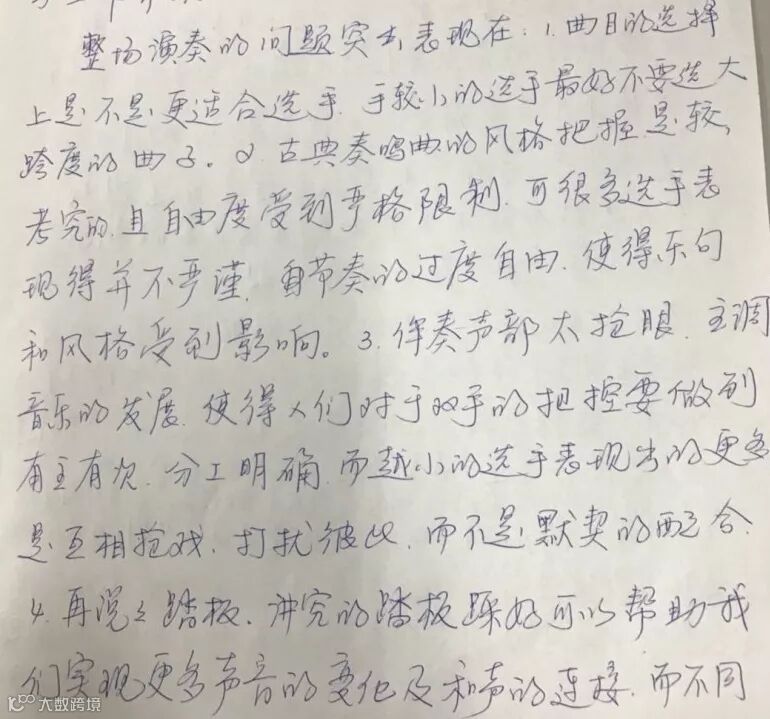 整场演奏的问题突出表现在：1.曲目的选择
上是不是更适合选手.手较小的选手最好不要选大
跨度的曲子。2.古典奏鸣曲的风格把握是较
考究的,且自由度受到严格限制.可很多选手表
现得并不严谨.自节奏的过度自由.使得乐句
和风格受到影响。3.伴奏声部太抢眼.主调
音乐的发展.使得人们对于双手的把控要做到
有主有次.分工明确.而越小的选手表现出的更多
是互相抢戏.打扰彼此.而不是默契的配合.
4.再说说踏板.讲究的踏板踩好可以帮助我
们实现更多声音的变化及和声的连接.而不同
大数跨境